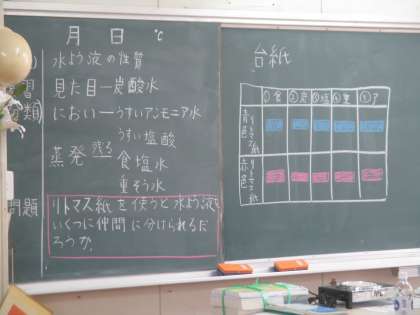 月 日 ℃
水よう液の性質
習 見た目―炭酸水
類) におい―うすいアンモニア水
うすい塩酸
蒸発 残る 食塩水
重そう水
問題 リトマス紙を使うと水よう液を
いくつに仲間に分けられるだ
ろうか。
台紙
①食 ②炭 ③塩 ④重 ⑤ア
青色リトマス紙
赤色リトマス紙